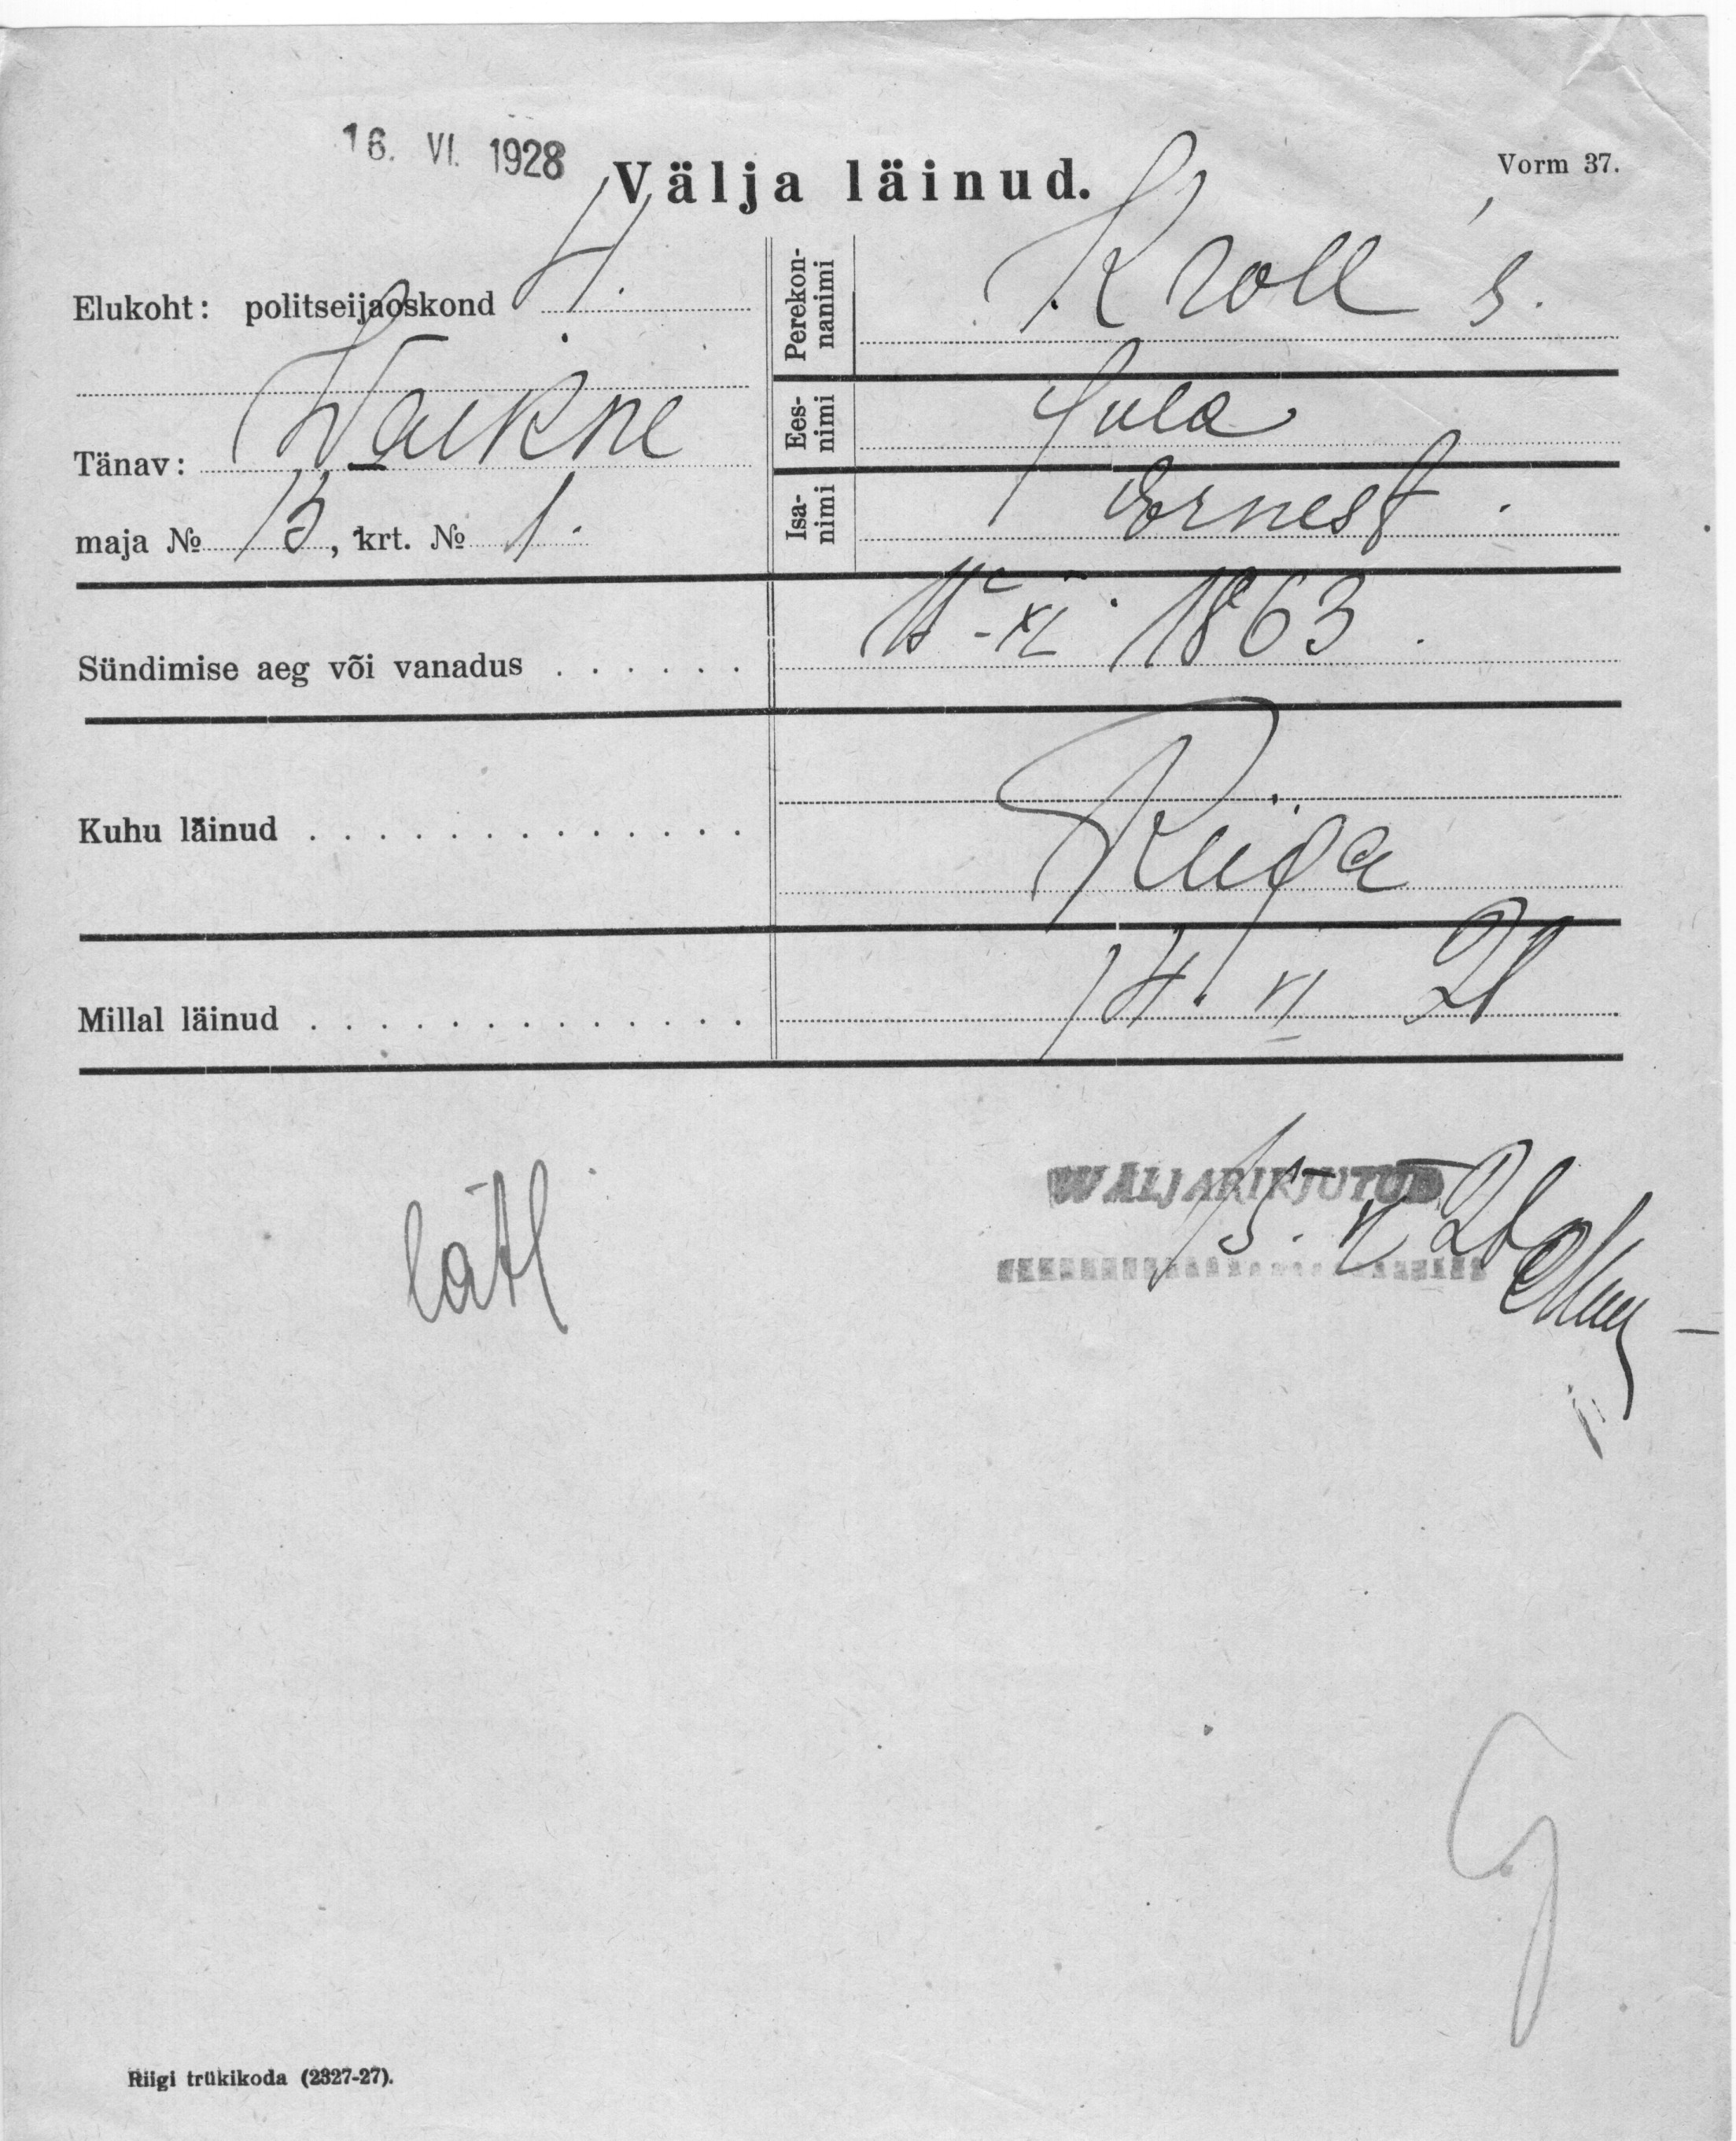 16. VI. 1928
Välja läinud.
Vorm 37.
Elukoht: politseijaoskond 4.
Tänav: Waikne
maja № 13, krt. № 1.
Perekon-
nanimi
Kroll's.
Ees-
nimi
Jula
Isa-
nimi
Ernest.
Sündimise aeg või vanadus . . . . . .
XI. 1863.
Kuhu läinud . . . . . . . . . . . . .
Riiga
Millal läinud . . . . . . . . . . . . .
14. VI 28
lätl
WÄLJAKIRJUTUD
15. VI 28
Riigi trükikoda (2327-27).